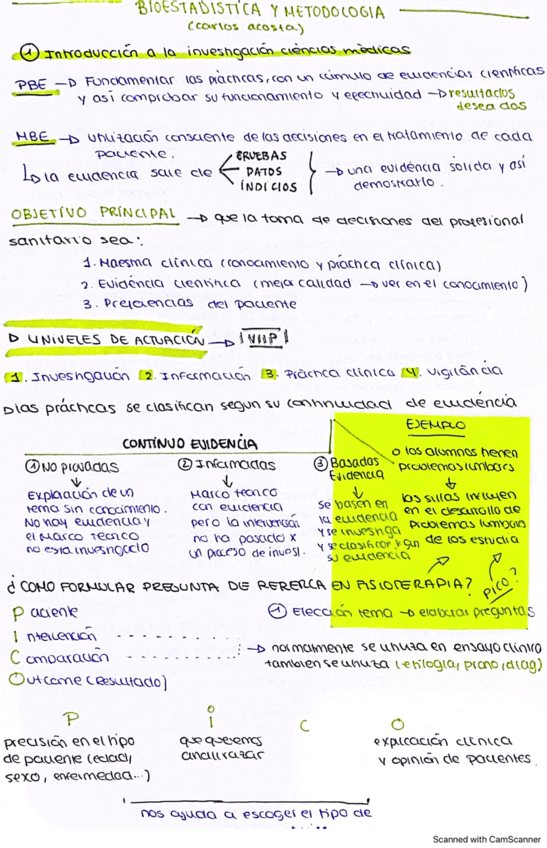 BIOESTADISTICA Y METODOLOGIA
(carlos acosta)
① Introducción a la investigación ciencias médicas
PBE → Fundamentar las prácticas, con un cúmulo de evidencias científicas
y así comprobar su funcionamiento y efectividad → resultados
deseados
MBE → Utilización consciente de las decisiones en el tratamiento de cada
paciente.
↳ la evidencia sale de PRUEBAS
DATOS
INDICIOS
→ una evidencia sólida y así
demostrarlo.
OBJETIVO PRINCIPAL → que la toma de decisiones del profesional
sanitario sea:
1. Maestría clínica (conocimiento y práctica clínica)
2. Evidencia científica (mejor calidad → ver en el conocimiento)
3. Preferencias del paciente
▷ 4 NIVELES DE ACTUACIÓN → | VIIP |
1. Investigación 2. Información 3. Práctica clínica 4. Vigilancia
▷ las prácticas se clasifican segun su continuidad de evidencia
CONTÍNUO EVIDENCIA
① NO Probadas
Explicación de un
tema sin conocimiento.
No hay evidencia y
el marco teórico
no está investigado
② Informadas
Marco teórico
con evidencia
pero la intervención
no ha pasado x
un proceso de invest.
③ Basadas
Evidencia
se basan en
la evidencia
y se investiga
y se clasifican x gun
su evidencia
EJEMPLO
o los alumnos tienen
problemas lumbares
las sillas influyen
en el desarrollo de
problemas lumbares
de los estudia
PICO?
¿COMO FORMULAR PREGUNTA DE RERERCA EN FISIOTERAPIA?
Paciente
Intervención
Comparación
Outcome (Resultado)
① Elección tema → elaborar preguntas
→ normalmente se utiliza en ensayo clínico
tambien se utiliza (etilogia, prono, diag)
P
precisión en el tipo
de paciente (edad,
sexo, enfermedad...)
i
que queremos
analizar
C
O
explicación clínica
y opinión de pacientes.
nos ayuda a escoger el tipo de
Scanned with CamScanner